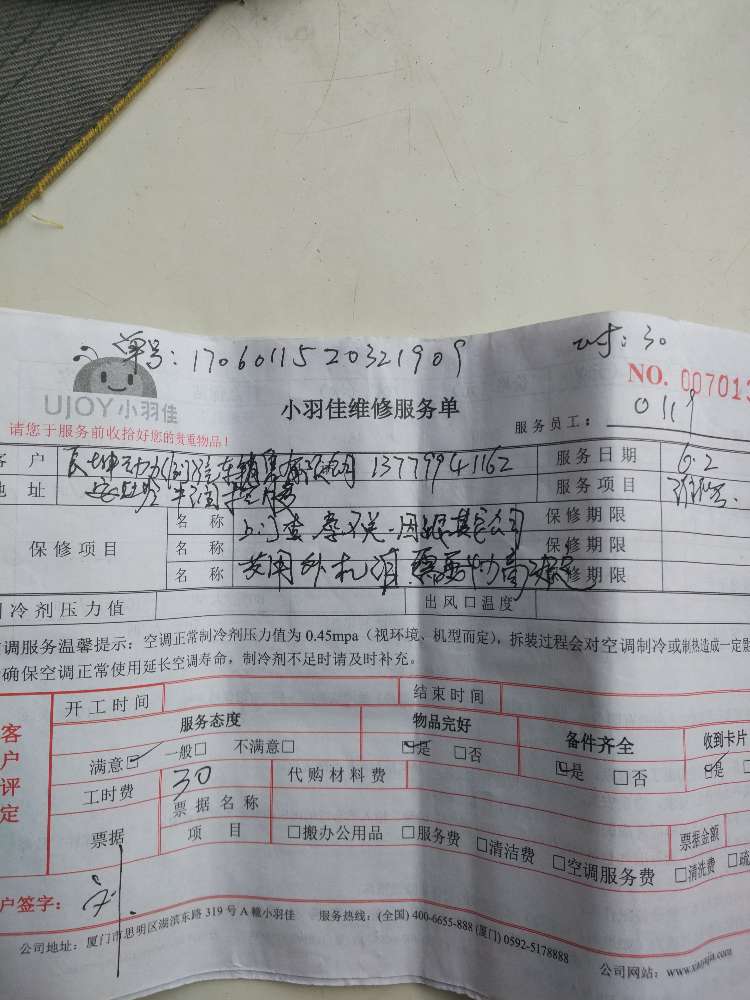 单号: 1706011520321909
时: 30
UJOY小羽佳
小羽佳维修服务单
NO. 007013
服务员工: 0119
请您于服务前收拾好您的贵重物品!
客 户 13779941162 服务日期 6.2
地 址 服务项目
保修项目 名 称 保修期限
名 称 保修期限
名 称 保修期限
冷剂压力值 出风口温度
调服务温馨提示: 空调正常制冷剂压力值为 0.45mpa (视环境、机型而定), 拆装过程会对空调制冷或制热造成一定影
确保空调正常使用延长空调寿命, 制冷剂不足时请及时补充。
客户评定
开工时间 结束时间
服务态度 物品完好 备件齐全 收到卡片
满意☑ 一般□ 不满意□ ☑是 □否 ☑是 □否 ☑是
工时费 30 代购材料费
票据 票据名称
项 目 □搬办公用品 □服务费 □清洁费 □空调服务费 □清洗费 □疏
票据金额
户签字:
公司地址: 厦门市思明区湖滨东路 319 号 A 幢小羽佳 服务热线: (全国) 400-6655-888 (厦门) 0592-5178888
公司网站: www.xiaoyujia.com